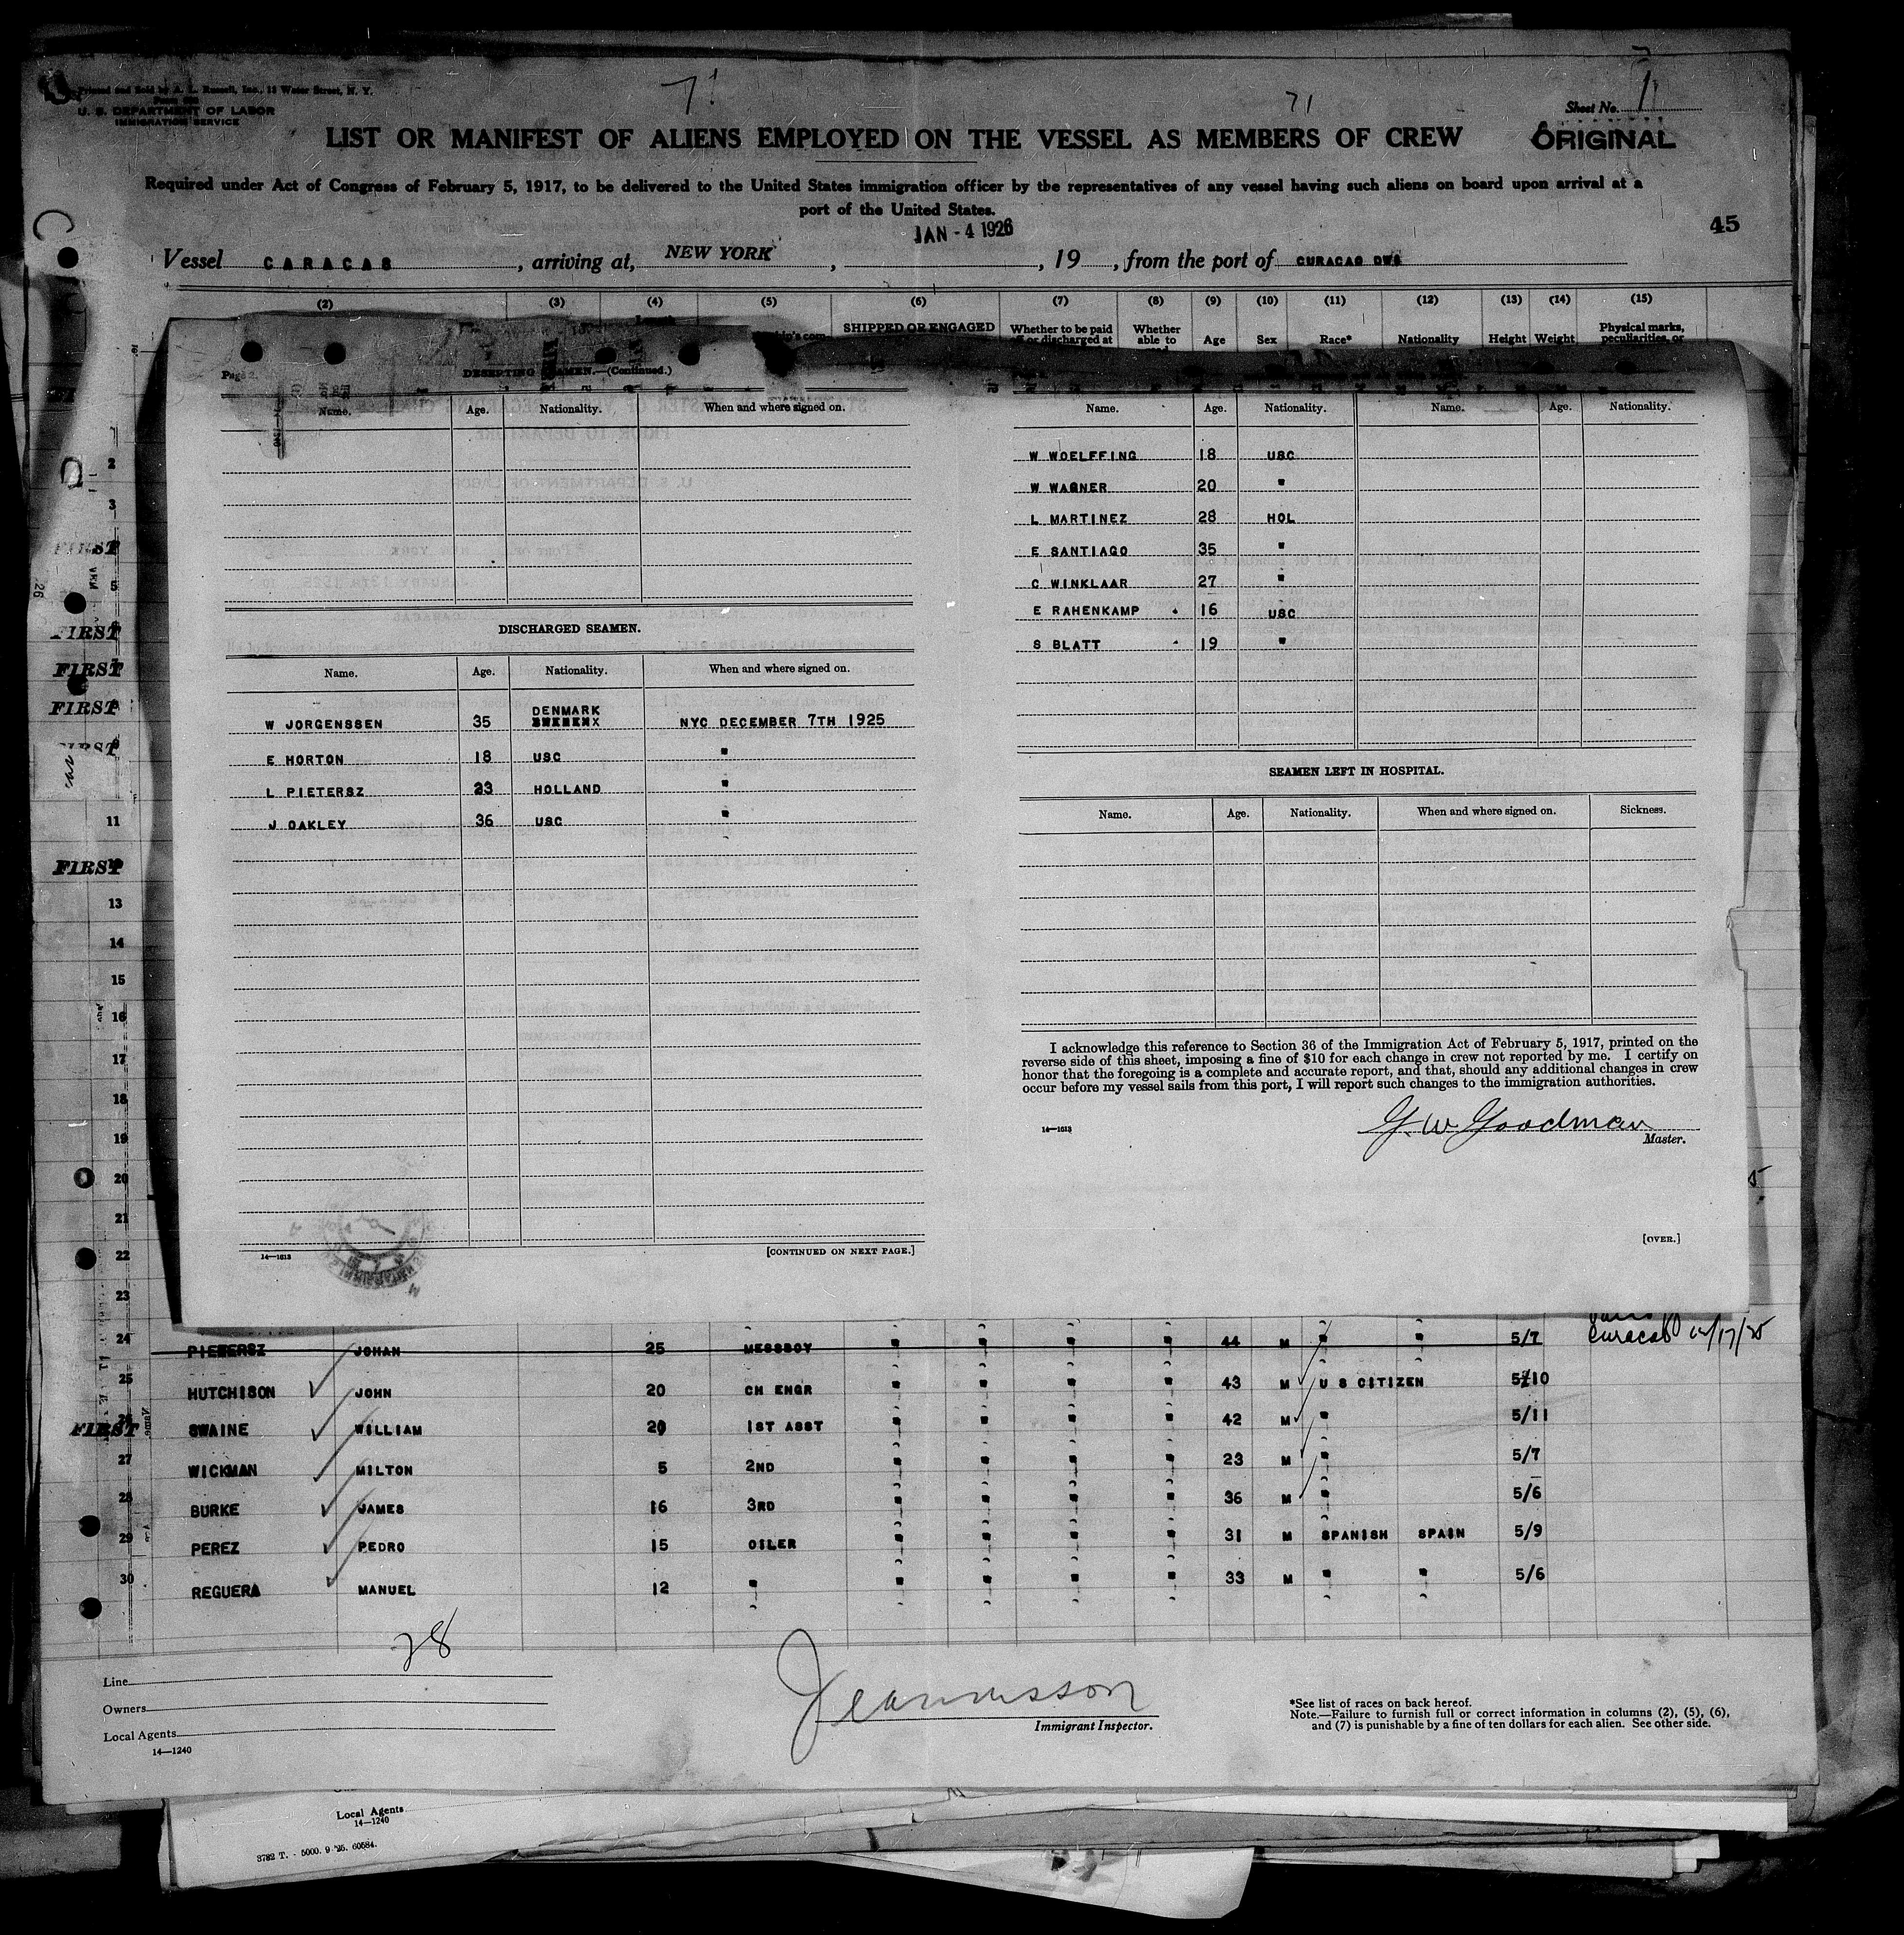 Printed and Sold by A. L. Russell, Inc., 12 Water Street, N. Y.
U. S. DEPARTMENT OF LABOR
IMMIGRATION SERVICE
71
71
Sheet No. 1
LIST OR MANIFEST OF ALIENS EMPLOYED ON THE VESSEL AS MEMBERS OF CREW
ORIGINAL
Required under Act of Congress of February 5, 1917, to be delivered to the United States immigration officer by the representatives of any vessel having such aliens on board upon arrival at a
port of the United States.
JAN - 4 1926
45
Vessel CARACAS, arriving at, NEW YORK, , 19 , from the port of CURACAO DWS
(2) (3) (4) (5) (6) (7) (8) (9) (10) (11) (12) (13) (14) (15)
SHIPPED OR ENGAGED Whether to be paid Whether Age Sex Race* Nationality Height Weight Physical marks,
discharged at able to peculiarities, or
Page 2.
DESERTING SEAMEN.—(Continued.)
Name. Age. Nationality. When and where signed on.
DISCHARGED SEAMEN.
Name. Age. Nationality. When and where signed on.
DENMARK
W JORGENSSEN 35 NYC DECEMBER 7TH 1925
E HORTON 18 USC "
L PIETERSZ 23 HOLLAND "
J OAKLEY 36 USC "
14—1613
[CONTINUED ON NEXT PAGE.]
Name. Age. Nationality. Name. Age. Nationality.
W WOELFFING 18 USC
W WAGNER 20 "
L MARTINEZ 28 HOL
E SANTIAGO 35 "
C WINKLAAR 27 "
E RAHENKAMP 16 USC
S BLATT 19 "
SEAMEN LEFT IN HOSPITAL.
Name. Age. Nationality. When and where signed on. Sickness.
I acknowledge this reference to Section 36 of the Immigration Act of February 5, 1917, printed on the
reverse side of this sheet, imposing a fine of $10 for each change in crew not reported by me. I certify on
honor that the foregoing is a complete and accurate report, and that, should any additional changes in crew
occur before my vessel sails from this port, I will report such changes to the immigration authorities.
14—1613
G. W. Goodman
Master.
[OVER.]
2
3
FIRST
5
FIRST
FIRST
FIRST
FIRST
11
FIRST
13
14
15
16
17
18
19
20
21
22
23
24 PIETERSZ JOHAN 25 MESSBOY " " " " 44 M " " 5/7 Curacao 12/17/25
25 HUTCHISON JOHN 20 CH ENGR " " " " 43 M U S CITIZEN 5/10
FIRST 26 SWAINE WILLIAM 20 1ST ASST " " " " 42 M " 5/11
27 WICKMAN MILTON 5 2ND " " " " 23 M " 5/7
28 BURKE JAMES 16 3RD " " " " 36 M " 5/6
29 PEREZ PEDRO 15 OILER " " " " 31 M SPANISH SPAIN 5/9
30 REGUERA MANUEL 12 " " " " " 33 M " " 5/6
28
Line
Owners
Local Agents
14—1240
Immigrant Inspector.
*See list of races on back hereof.
Note.—Failure to furnish full or correct information in columns (2), (5), (6),
and (7) is punishable by a fine of ten dollars for each alien. See other side.
Local Agents
14—1240
3782 T. - 5000. 9 '25. 60584.